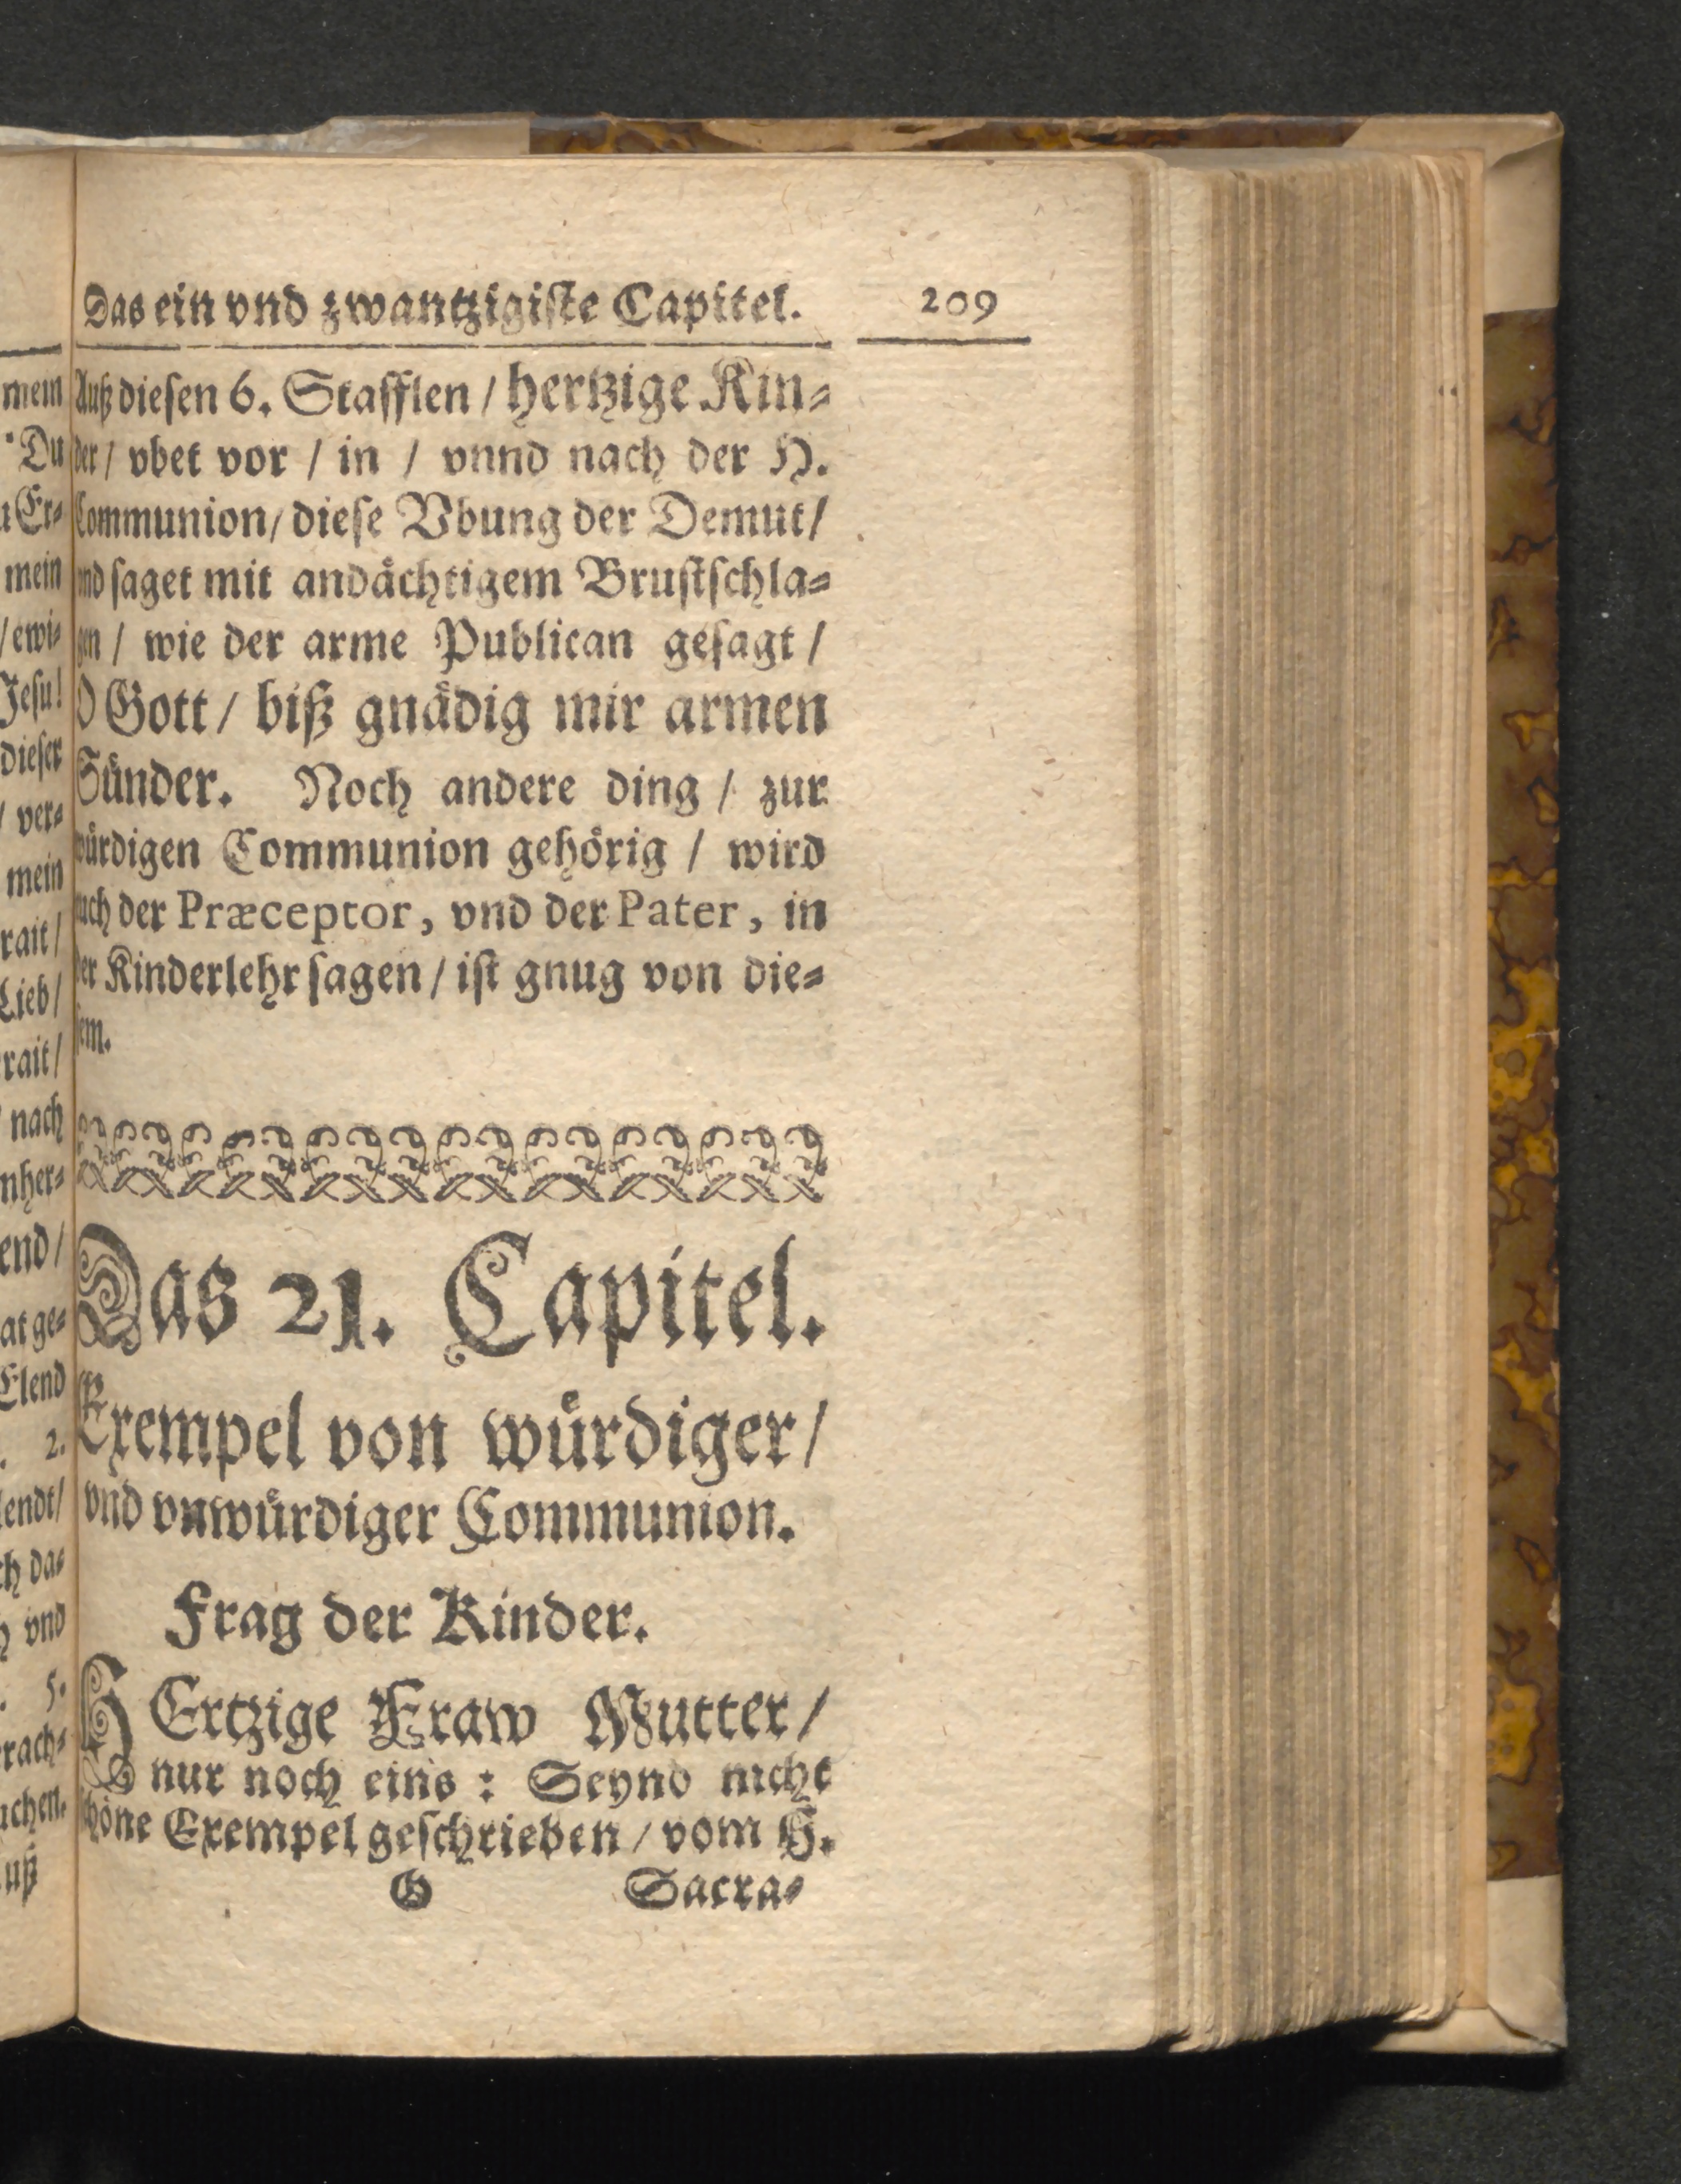 Das ein vnd zwantzigiste Capitel. 209
Auß diesen 6. Stafflen / hertzige Kin-
der / vbet vor / in / vnnd nach der H.
Communion / diese Vbung der Demut /
vnd saget mit andächtigem Brustschla-
gen / wie der arme Publican gesagt /
O Gott / biß gnädig mir armen
Sünder. Noch andere ding / zur
würdigen Communion gehörig / wird
euch der Præceptor, vnd der Pater, in
der Kinderlehr sagen / ist gnug von die-
sem.
Das 21. Capitel.
Exempel von würdiger /
vnd vnwürdiger Communion.
Frag der Kinder.
HErtzige Fraw Mutter /
nur noch eins : Seynd nicht
schöne Exempel geschrieben / vom H.
G Sacra-